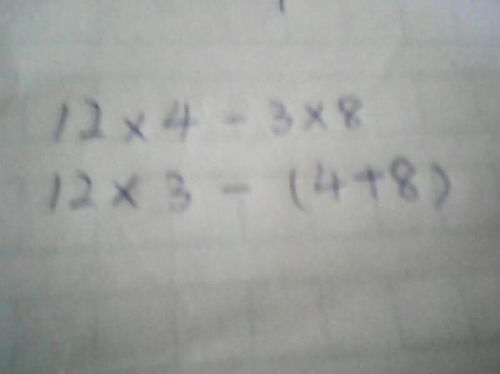 12 × 4 - 3 × 8
12 × 3 - (4+8)